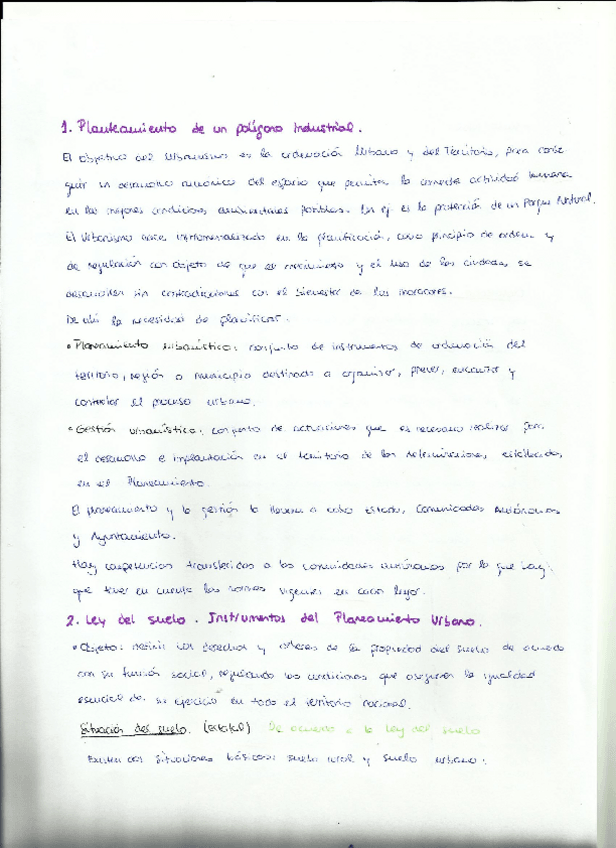 1. Planteamiento de un polígono Industrial.
El objetivo del Urbanismo es la ordenación Urbana y del Territorio, para conse
guir un desarrollo armónico del espacio que permita la correcta actividad humana
en las mejores condiciones ambientales posibles. Un ej. es la protección de un Parque Natural.
El Urbanismo nace instrumentalizado en la planificación, como principio de orden y
de regulación con objeto de que el crecimiento y el uso de las ciudades, se
desarrollen sin contradicciones con el bienestar de los moradores.
De ahí la necesidad de planificar.
• Planeamiento urbanístico: conjunto de instrumentos de ordenación del
territorio, región o municipio destinado a organizar, prever, encauzar y
controlar el proceso urbano.
• Gestión urbanística: conjunto de actuaciones que es necesario realizar para
el desarrollo e implantación en el territorio de las determinaciones, establecidas,
en el Planeamiento.
El planeamiento y la gestión la llevan a cabo Estado, Comunidades Autónomas
y Ayuntamiento.
Hay competencias transferidas a las comunidades autónomas por lo que hay
que tener en cuenta las normas vigentes en cada lugar.
2. Ley del suelo. Instrumentos del Planeamiento Urbano.
• Objeto: definir los derechos y deberes de la propiedad del suelo de acuerdo
con su función social, regulando las condiciones que aseguren la igualdad
esencial de su ejercicio en todo el territorio nacional.
Situación del suelo. (Estatal) De acuerdo a la Ley del suelo
Existen dos situaciones básicas: suelo rural y suelo urbano.